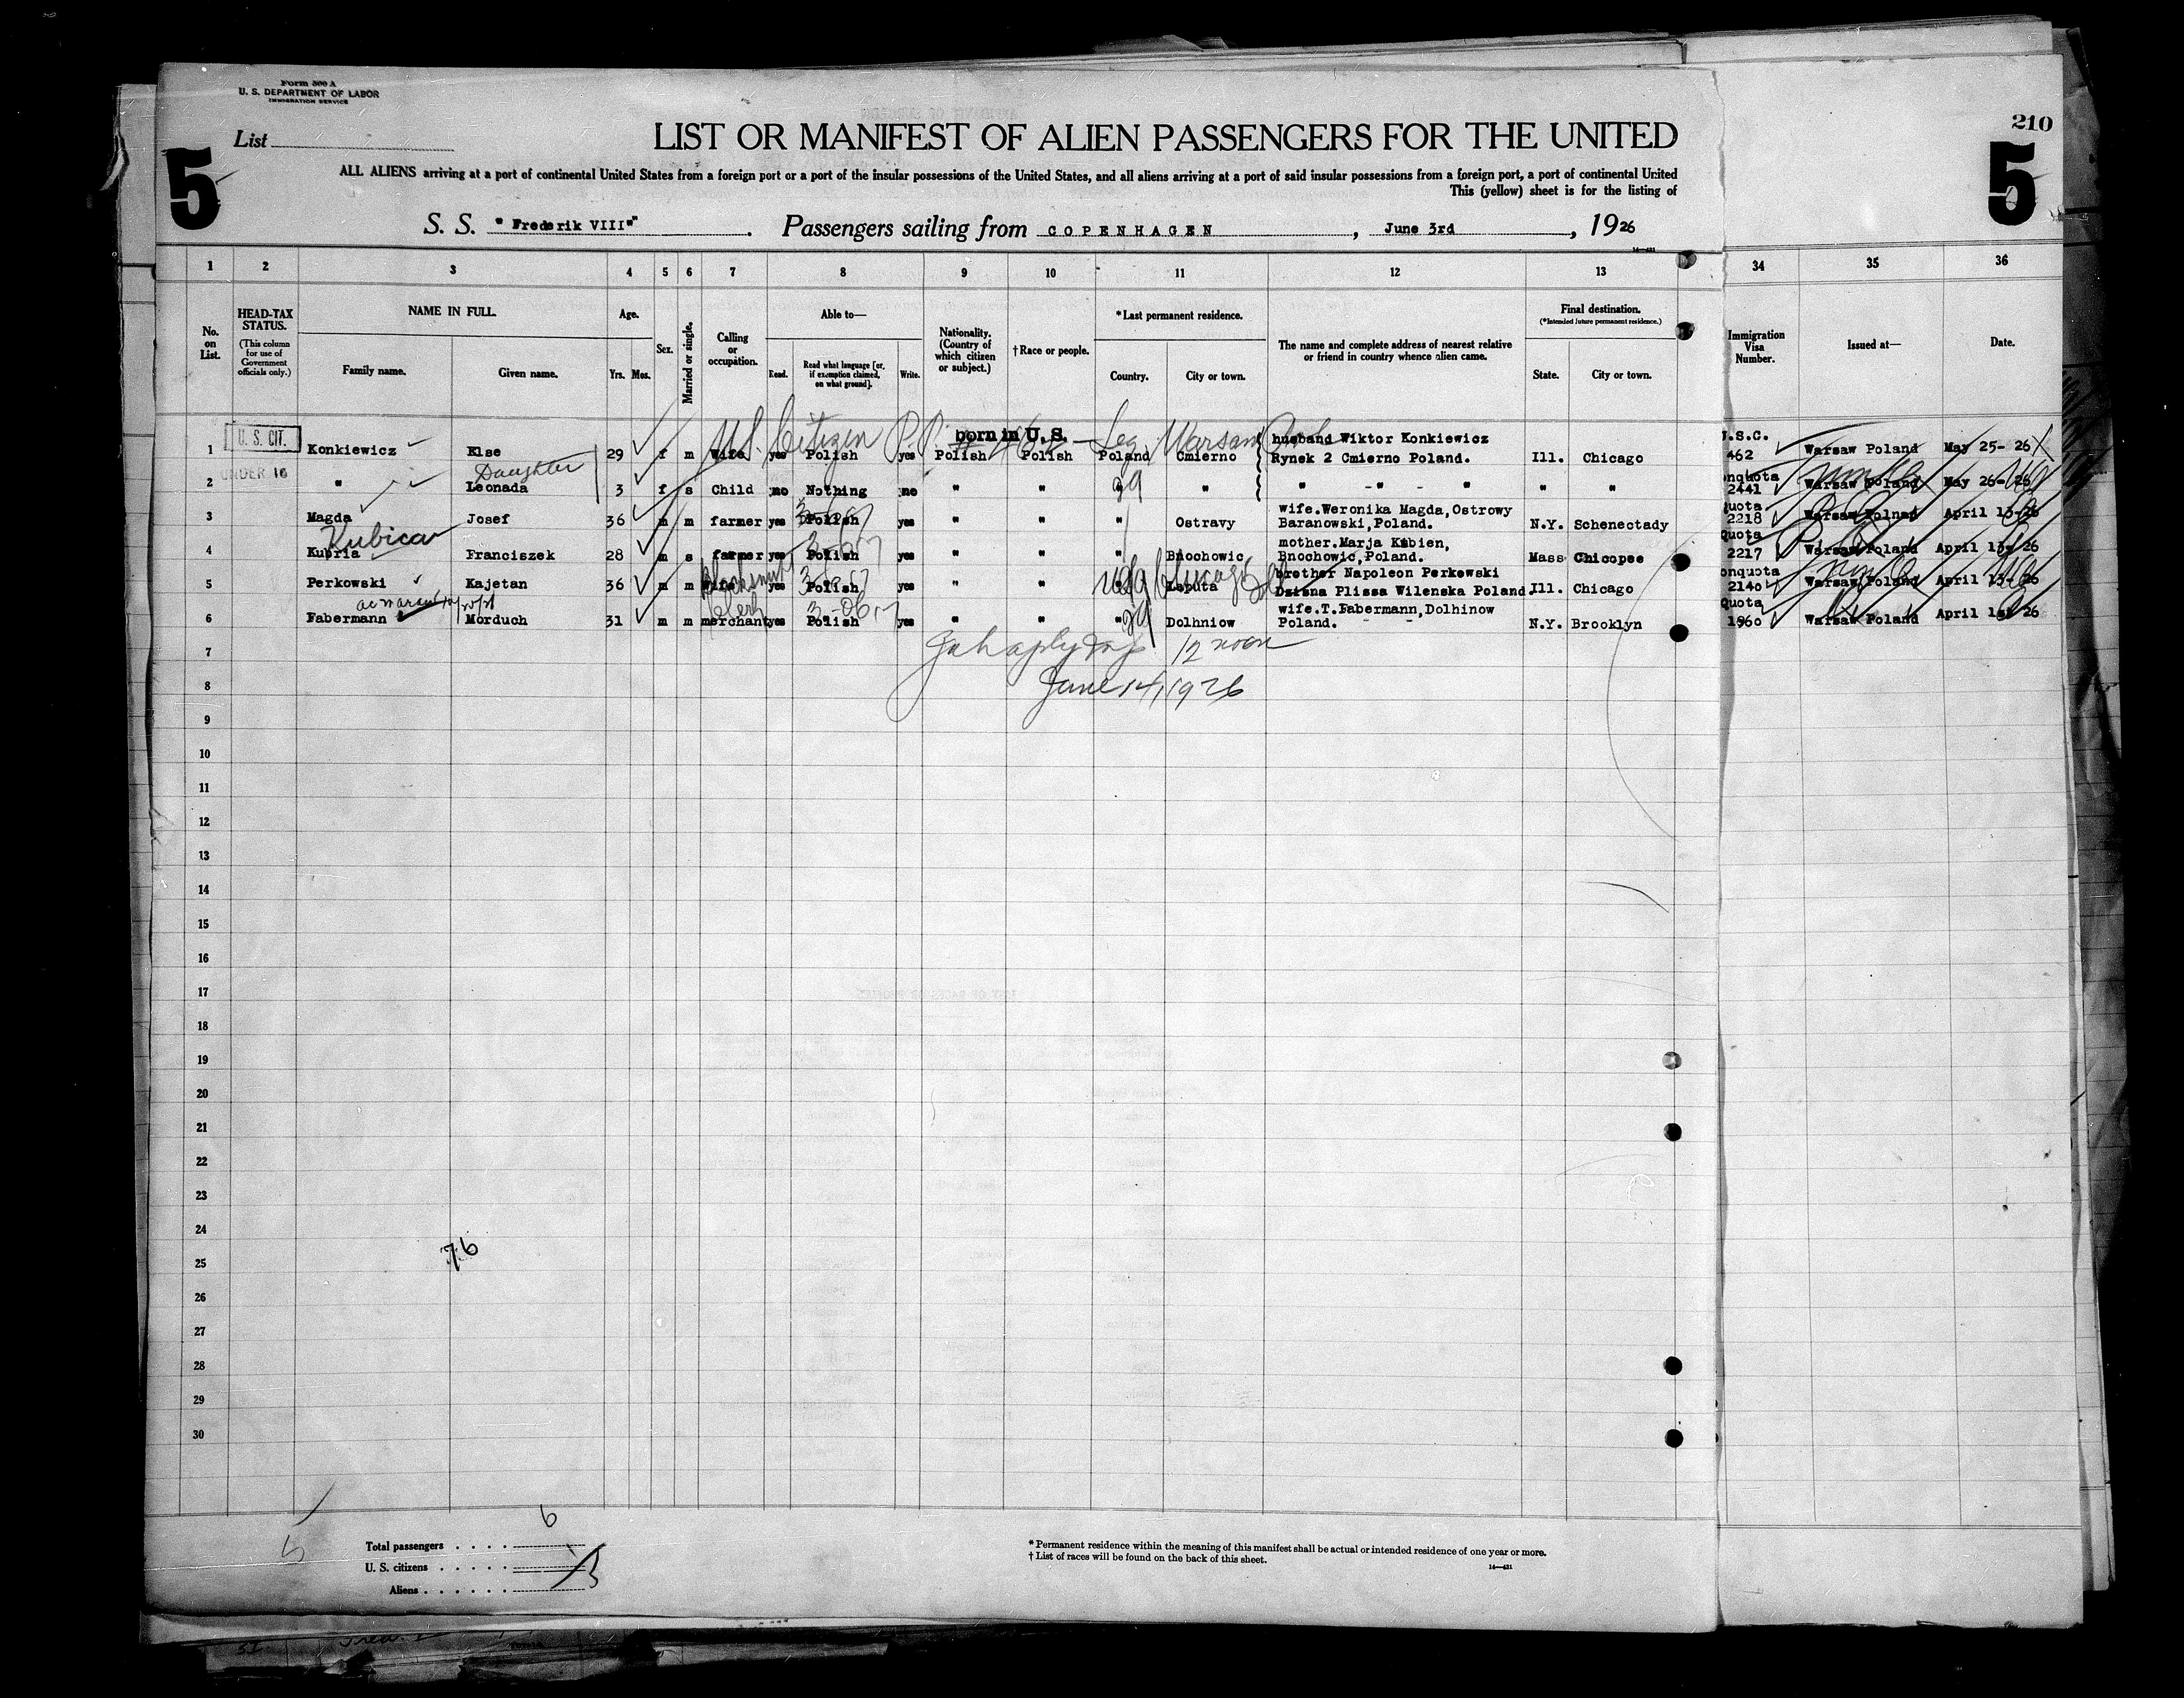 Form 500 A
U. S. DEPARTMENT OF LABOR
IMMIGRATION SERVICE
List
5
LIST OR MANIFEST OF ALIEN PASSENGERS FOR THE UNITED
210
5
ALL ALIENS arriving at a port of continental United States from a foreign port or a port of the insular possessions of the United States, and all aliens arriving at a port of said insular possessions from a foreign port, a port of continental United
This (yellow) sheet is for the listing of
S. S. "Frederik VIII" . Passengers sailing from COPENHAGEN , June 3rd , 1926
14—431
1 2 3 4 5 6 7 8 9 10 11 12 13 34 35 36
No. on List.
HEAD-TAX STATUS.
(This column for use of Government officials only.)
NAME IN FULL.
Family name. Given name.
Age.
Yrs. Mos.
Sex.
Married or single.
Calling or occupation.
Able to—
Read. Read what language [or, if exemption claimed, on what ground]. Write.
Nationality. (Country of which citizen or subject.)
†Race or people.
*Last permanent residence.
Country. City or town.
The name and complete address of nearest relative or friend in country whence alien came.
Final destination.
(*Intended future permanent residence.)
State. City or town.
Immigration Visa Number.
Issued at—
Date.
U.S. Citizen P.P. born in U.S. Leg. Warsaw
U. S. CIT.
husband Wiktor Konkiewicz U.S.C.
1 Konkiewicz Else 29 f m Wife yes Polish yes Polish Polish Poland Cmierno Rynek 2 Cmierno Poland. Ill. Chicago 462 Warsaw Poland May 25- 26
UNDER 16
Daughter
nquota
2 " Leonada 3 f s Child no Nothing no " " " " " -" - " " " 2441 Warsaw Poland May 26- 26
wife.Weronika Magda,Ostrowy
3 Magda Josef 36 m m farmer yes Polish yes " " " Ostravy Baranowski,Poland. N.Y. Schenectady 2218 Warsaw Polnad April 13-26
Kubica
mother.Marja Kubien, Quota
4 Kubria Franciszek 28 m s farmer yes Polish yes " " " Bnochowic Bnochowic,Poland. Mass Chicopee 2217 Warsaw Poland April 13- 26
Blacksmith
brother Napoleon Perkowski onquota
5 Perkowski Kajetan 36 m m yes Polish yes " " " Laputa Dzisna Plissa Wilenska Poland. Ill. Chicago 2140 Warsaw Poland April 13- 26
Clerk
wife.T.Fabermann,Dolhinow Quota
6 Fabermann Morduch 31 m m merchant yes Polish yes " " " Dolhniow Poland. - - N.Y. Brooklyn 1960 Warsaw Poland April 1st 26
7 12 noon
8 June 14, 1926
9
10
11
12
13
14
15
16
17
18
19
20
21
22
23
24
76
25
26
27
28
29
30
Total passengers . . . . 6
U. S. citizens . . . . .
Aliens . . . . . .
5
* Permanent residence within the meaning of this manifest shall be actual or intended residence of one year or more.
† List of races will be found on the back of this sheet.
14—431